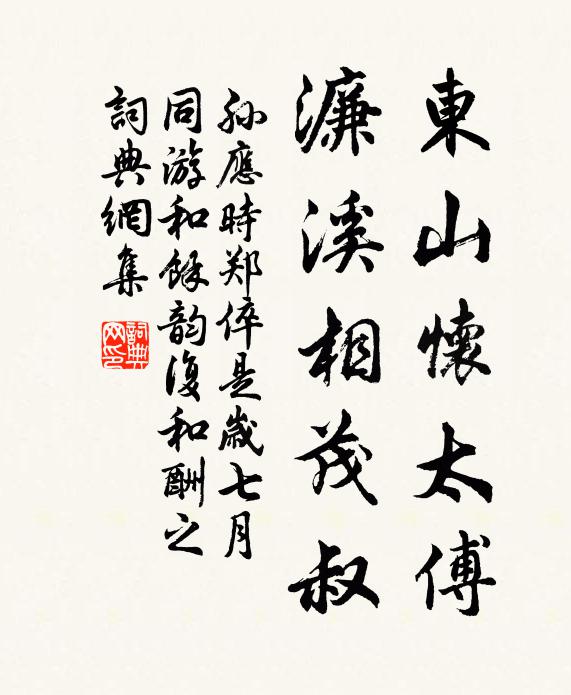 東山懷太傅
濂溪相茂叔
孙應時郑倅是歲七月
同游和餘韵復和酬之
詞典網集
詞典网印